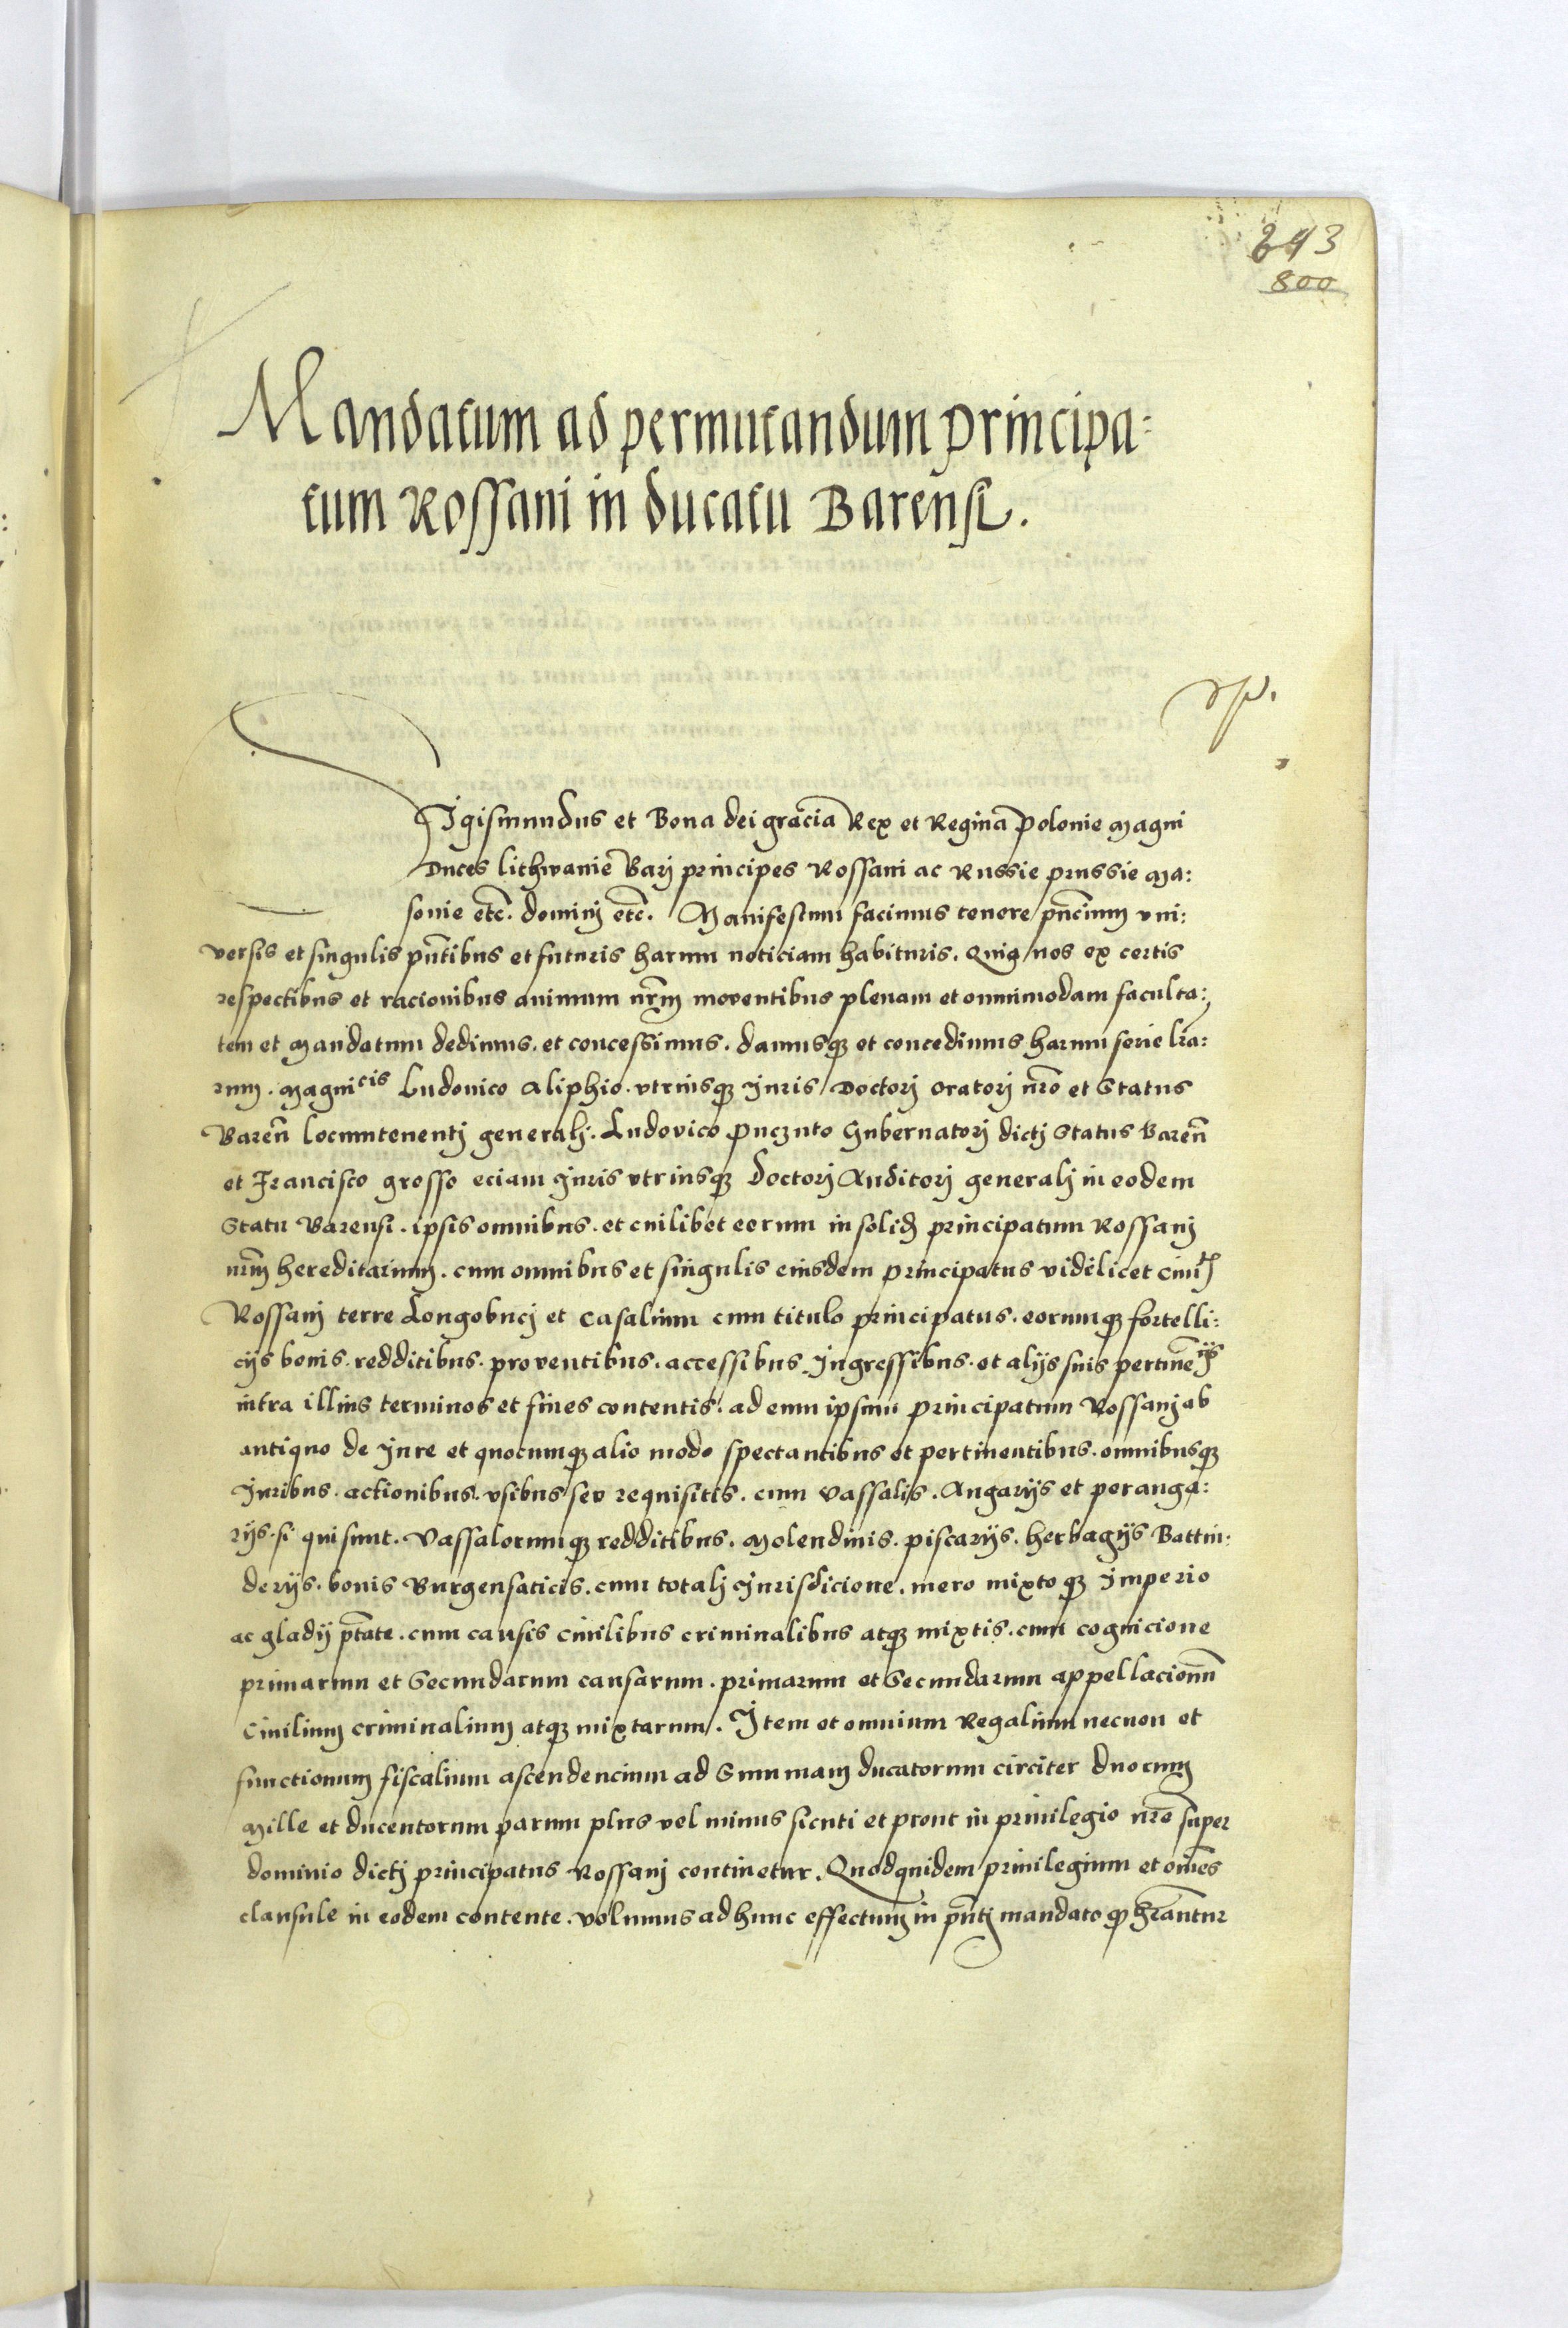 243
800
Mandatum ad permutandum principa:
tum Rossani in ducatu Barensi.
Sigismundus et Bona dei gracia Rex et Regina Polonie Magni
Duces lithwanie Barj principes Rossani ac Russie prussie Ma:
sovie etc. dominj etc. Manifestum facimus tenore pñcium vni:
versis et singulis pñtibus et futuris harum noticiam habituris. Quia nos ex certis
respectibus et racionibus animum nr̃m moventibus plenam et omnimodam faculta:
tem et Mandatum dedimus. et concessimus. damusqȝ et concedimus harum serie lr̃a:
rum. Magnicis Ludovico Aliphio. vtriusqȝ Juris Doctorj Oratorj nr̃o et Status
Bareñ locumtenentj generalj. Ludovico Puczuto Gubernatorj dictj Status Bareñ
et Francisco grosso eciam Juris vtriusqȝ Doctorj Auditorj generalj in eodem
Statu Barensi. ipsis omnibus. et cuilibet eorum in solid principatum Rossanj
nr̃m hereditarium. cum omnibus et singulis eiusdem principatus videlicet Ciuit
Rossanj terre Longobucj et Casalium cum titulo principatus. eorumqȝ fortelli:
cijs bonis. redditibus. proventibus. accessibus Jngressibus. et alijs suis pertineñijs
intra illius terminos et fines contentis. ad eum ipsum principatum Rossanj ab
antiquo de Jure et quocumqȝ alio modo spectantibus et pertinentibus. omnibusqȝ
Juribus. actionibus. vsibus seu requisitis. cum Vassalis. Angarijs et peranga:
rijs. si qui sunt. Vassalorumqȝ redditibus. Molendinis. piscarijs. herbagijs Battin:
derijs. bonis Burgensaticis. cum totalj Jurisdicione. mero mixtoqȝ Jmperio
ac gladij ptate. cum causis ciuilibus criminalibus atqȝ mixtis. cum cognicione
primarum et Secundarum causarum. primarum et Secundarum appellacionũ
Ciuilium criminalium atqȝ mixtarum. Jtem et omnium Regalium necnon et
functionum fiscalium ascendencium ad Summam ducatorum circiter duorum
Mille et ducentorum parum plus vel minus sicuti et prout in priuilegio nr̃o super
dominio dictj principatus Rossanj continetur. Quodquidem priuilegium et oẽs
clausule in eodem contente. volumus ad hunc effectum in pñtj mandato ꝓ hr̃antur